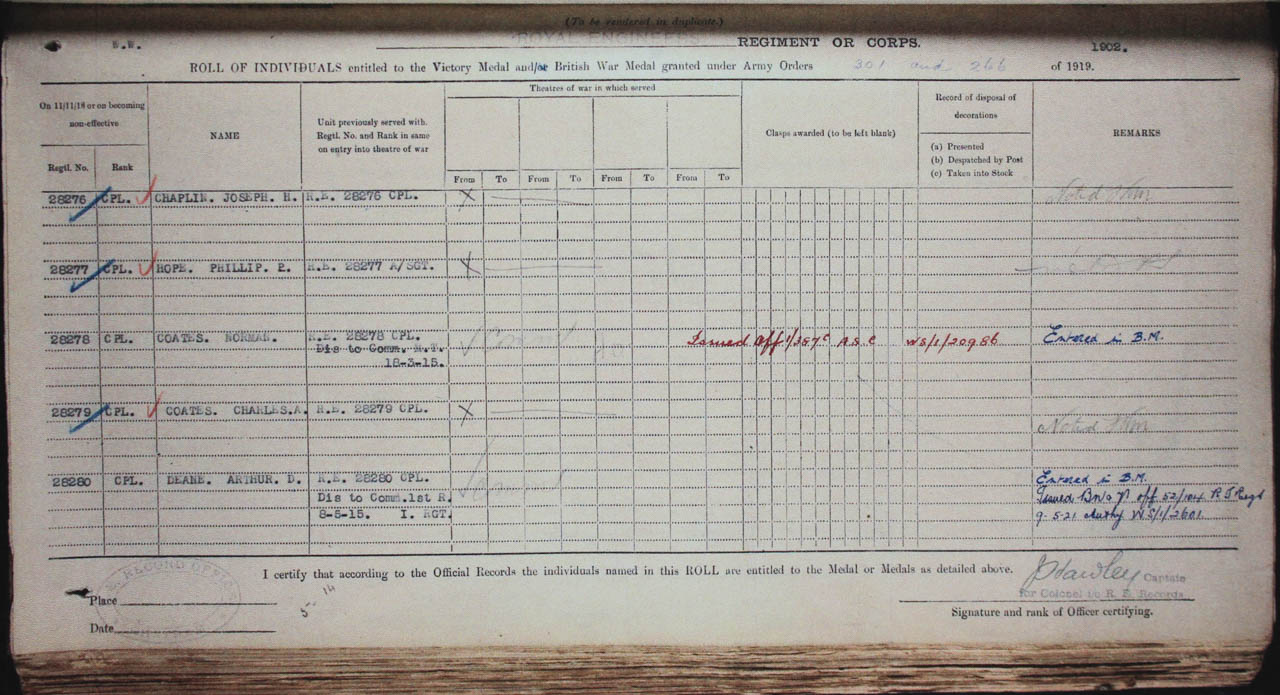 (To be rendered in duplicate.)
W.W. ROYAL ENGINEERS REGIMENT OR CORPS. 1902.
ROLL OF INDIVIDUALS entitled to the Victory Medal and/or British War Medal granted under Army Orders 301 and 266 of 1919.
On 11/11/18 or on becoming non-effective
Regtl. No.
Rank
NAME
Unit previously served with.
Regtl. No. and Rank in same
on entry into theatre of war
Theatres of war in which served
From To From To From To From To
Clasps awarded (to be left blank)
Record of disposal of
decorations
(a) Presented
(b) Despatched by Post
(c) Taken into Stock
REMARKS
28276 CPL. CHAPLIN. JOSEPH. H. R.E. 28276 CPL. X Noted
28277 CPL. HOPE. PHILLIP. E. R.E. 28277 A/SGT. X
28278 CPL. COATES. NORMAN. R.E. 28278 CPL. Issued Off 1/387c A.S.C WS/1/20986 Entered in B.M.
Dis to Comm. R.T.
18-3-15.
28279 CPL. COATES. CHARLES.A. R.E. 28279 CPL. X Noted
28280 CPL. DEANE. ARTHUR. D. R.E. 28280 CPL. Entered in B.M.
Dis to Comm.1st R. Issued off 52/104 Regt
8-5-15. I. RGT. 9-5-21 Authy WS/1/2601
I certify that according to the Official Records the individuals named in this ROLL are entitled to the Medal or Medals as detailed above.
J Hawley Captain
for Colonel i/c R. E. Records
RECORD OFFICE
Place
Date
Signature and rank of Officer certifying.